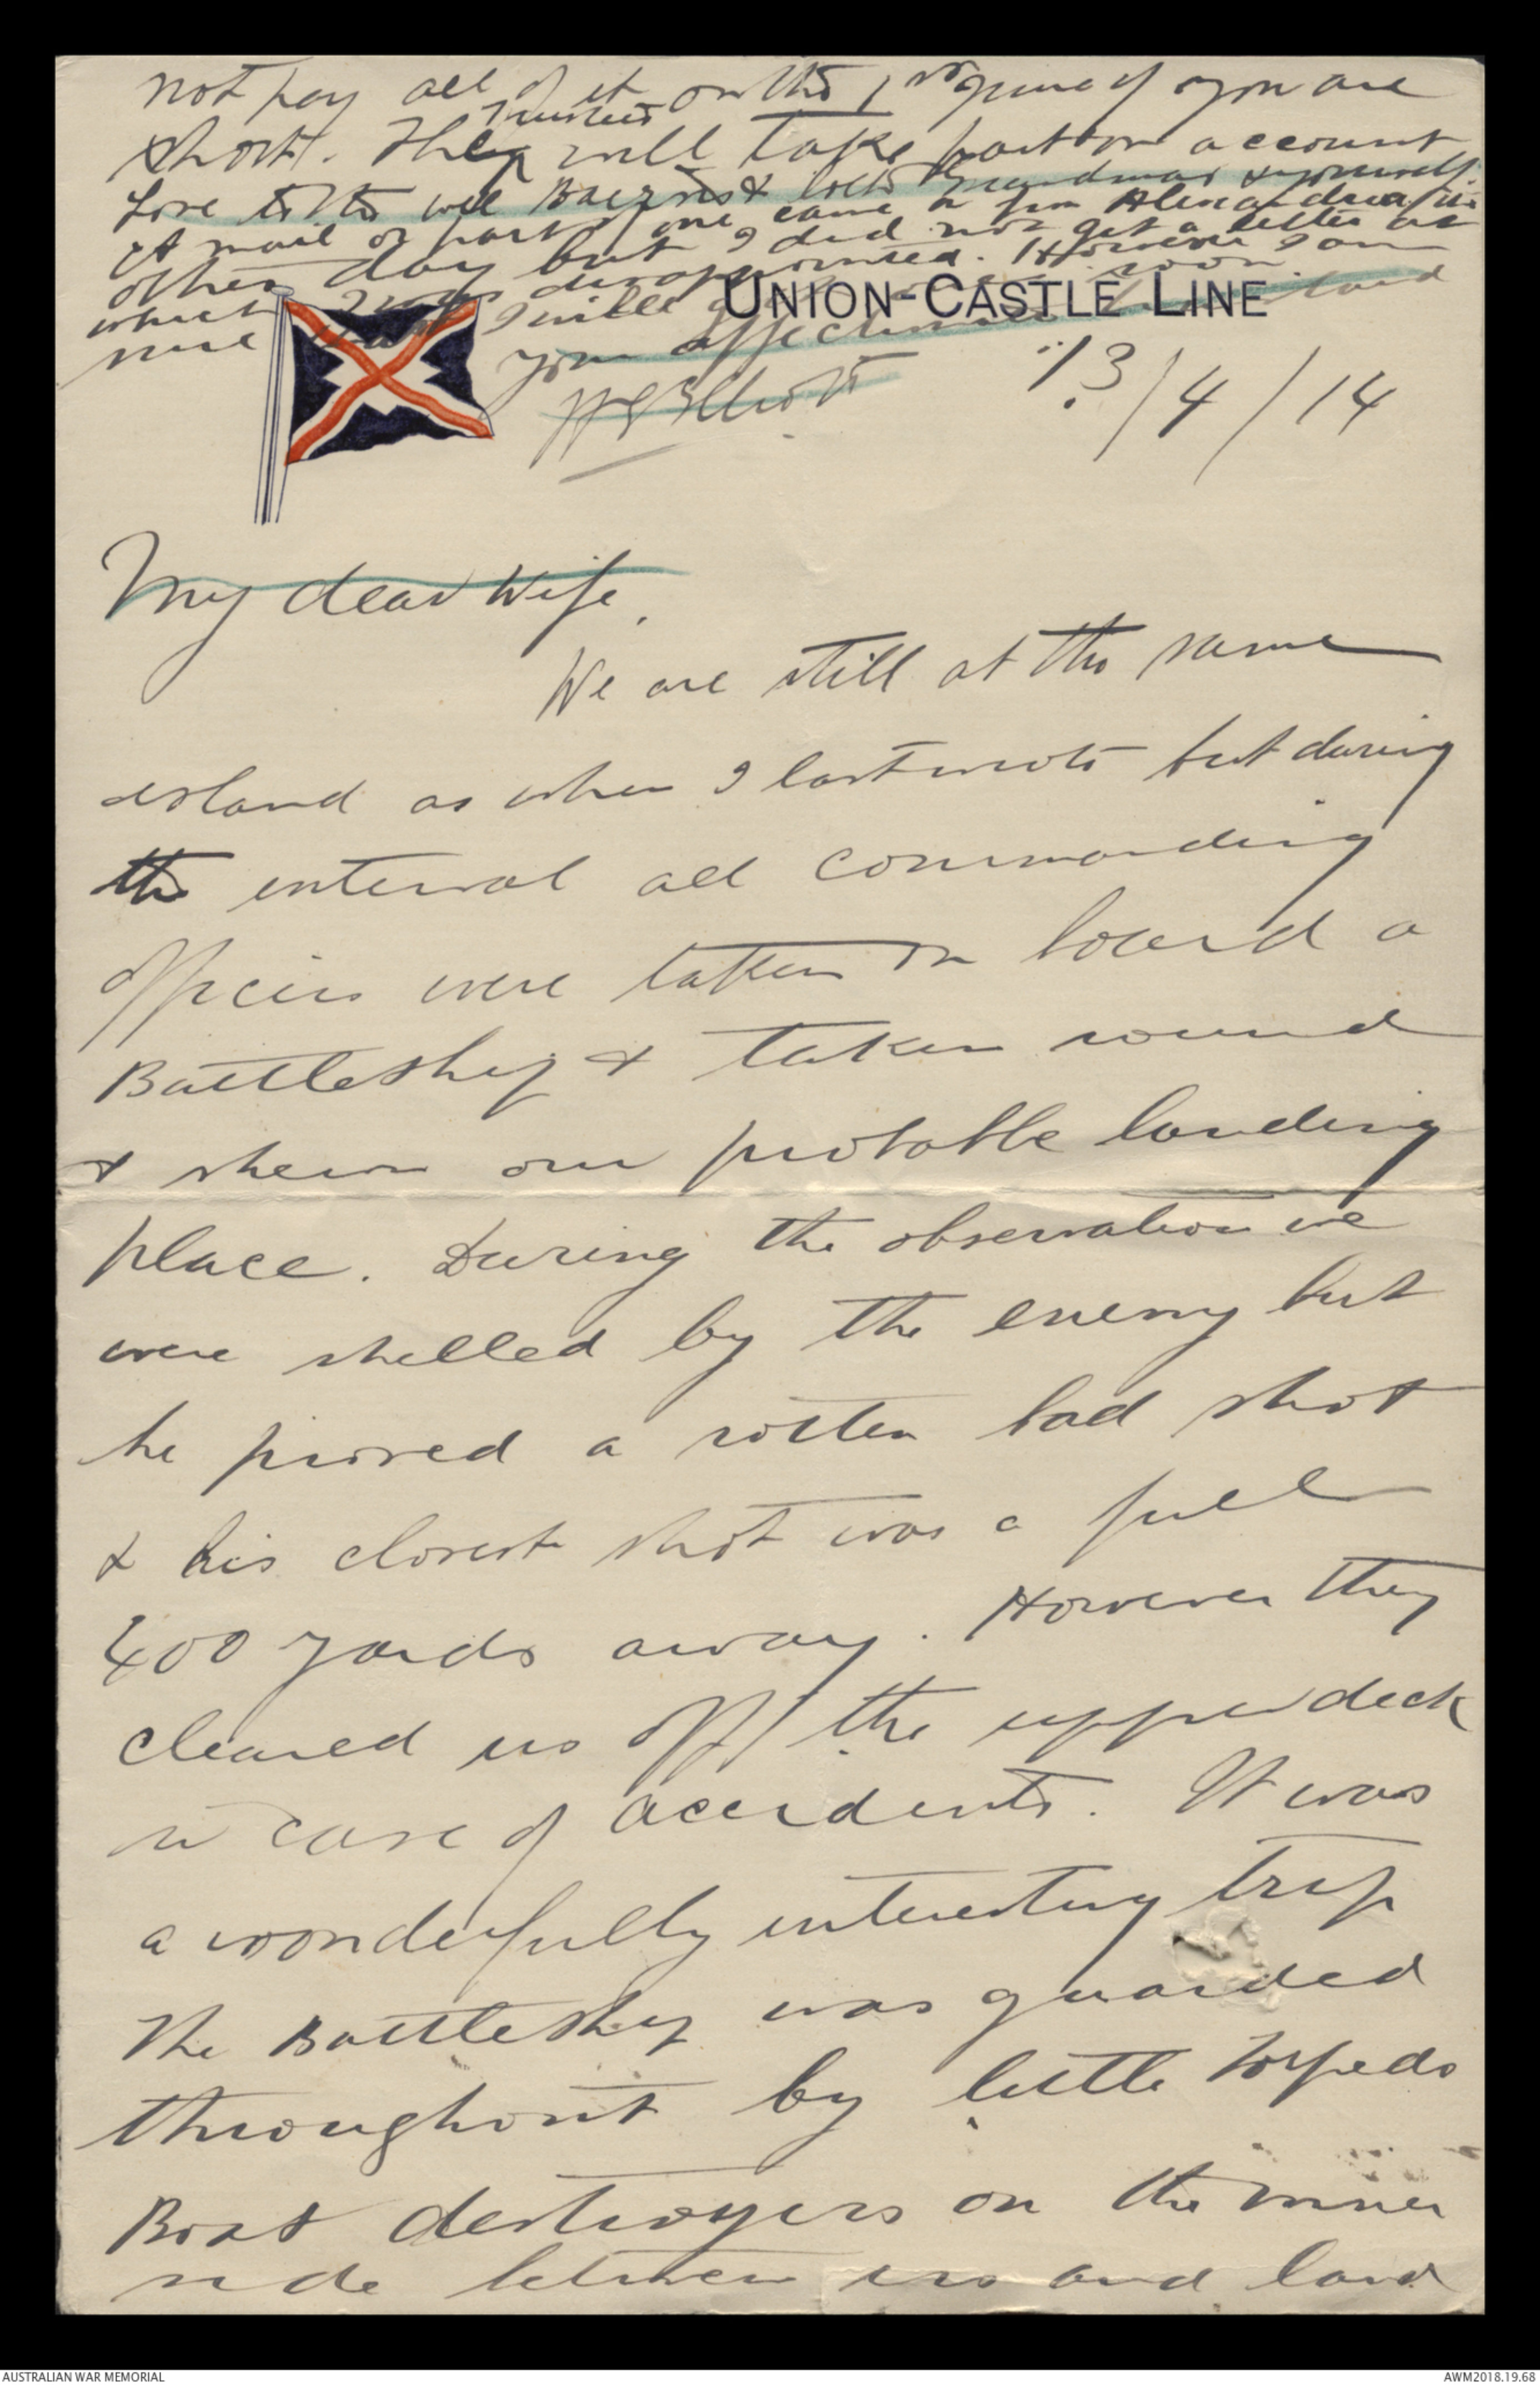 not pay all of it on the 1st June if you are
Trustees
short. They will take part on account
Love to the wee Bairnies & both Grandmas & yourself.
A mail or part of one came in from Alexandria the
other day but I did not get a letter at
which I was disappointed. However I am
sure I will get soon
Your affectionate husband
HE Elliott
UNION-CASTLE LINE
13/4/14
My dear Wife,
We are still at the same
island as when I last wrote but during
the interval all commanding
officers were taken on board a
Battleship & taken round
& shewn our probable landing
place. During the observation we
were shelled by the enemy but
he proved a rotten bad shot
& his closest shot was a full
400 yards away. However they
cleared us off the upper deck
in case of accidents. It was
a wonderfully interesting trip
The Battleship was guarded
throughout by little Torpedo
Boat destroyers on the inner
side between us and land
AUSTRALIAN WAR MEMORIAL
AWM2018.19.68